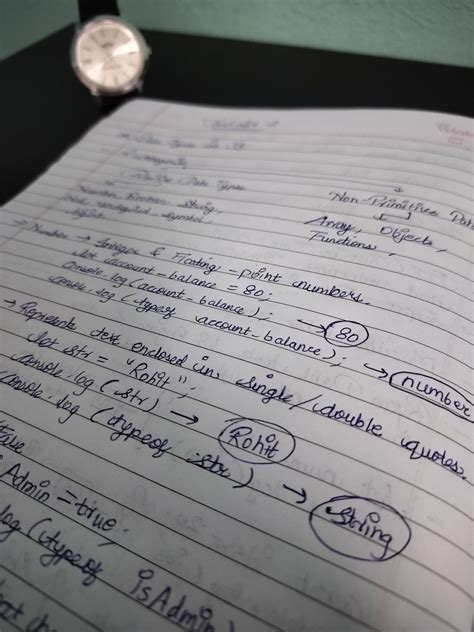 Data Types in JS
Data Types
Number, Boolean, String,
Null, undefined, symbol,
Non-Primitive Data
Array, Objects,
Functions,
→ Number → Integer & Floating-point numbers.
let account_balance = 80;
console.log(account_balance); → 80
console.log(typeof account_balance); → number
→ Represents text enclosed in single/double quotes.
let str = "Rohit";
console.log(str) → Rohit
console.log(typeof str) → String
isAdmin = true;
log(typeof isAdmin)